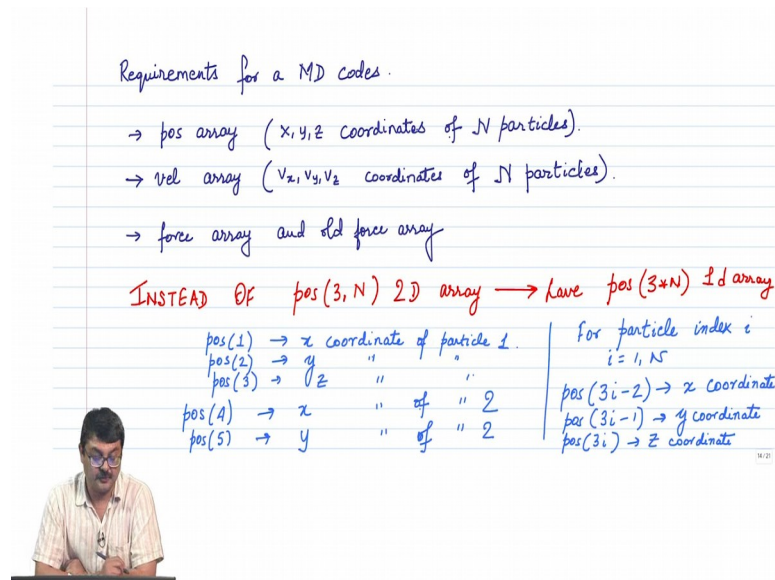 Requirements for a MD codes.
→ pos array (x, y, z coordinates of N particles).
→ vel array (Vx, Vy, Vz coordinates of N particles).
→ force array and old force array
INSTEAD OF pos(3, N) 2D array → have pos(3*N) 1d array
pos(1) → x coordinate of particle 1.
pos(2) → y " "
pos(3) → z " "
pos(4) → x " of " 2
pos(5) → y " of " 2
For particle index i
i = 1, N
pos(3i-2) → x coordinate
pos(3i-1) → y coordinate
pos(3i) → z coordinate
14/21